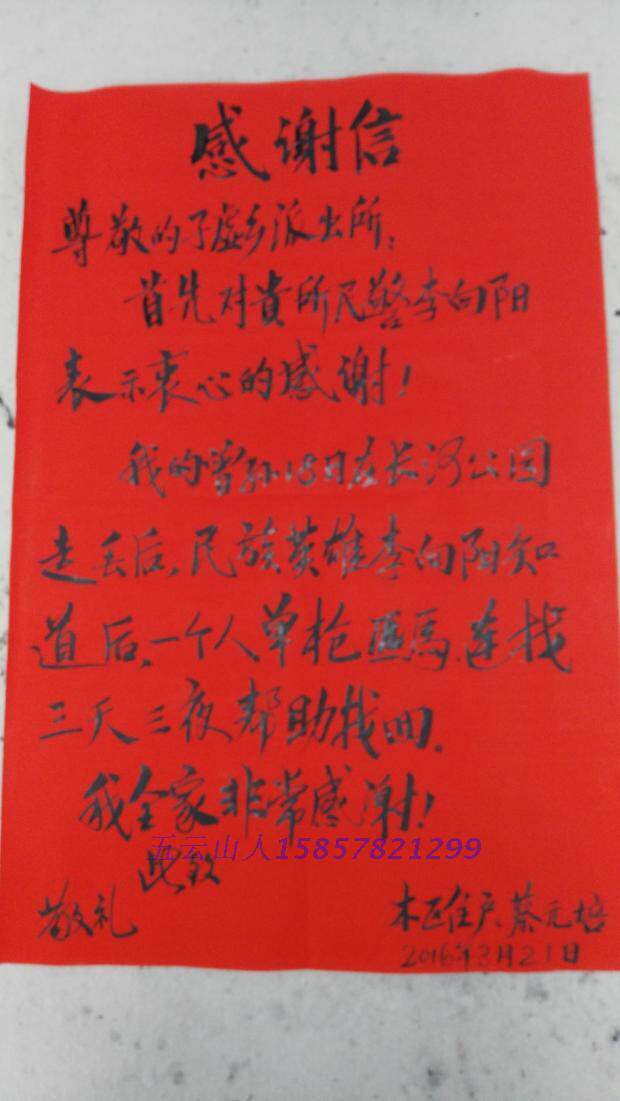 感谢信
尊敬的子虚乡派出所：
首先对貴所民警李向阳
表示衷心的感谢！
我的曾孙18日在长河公园
走丢后、民族英雄李向阳知
道后、一个人、单枪匹馬、连找
三天三夜帮助找回.
我全家非常感谢！
五云山人15857821299
此致
敬礼
本区住户、蔡元培
2016年3月21日